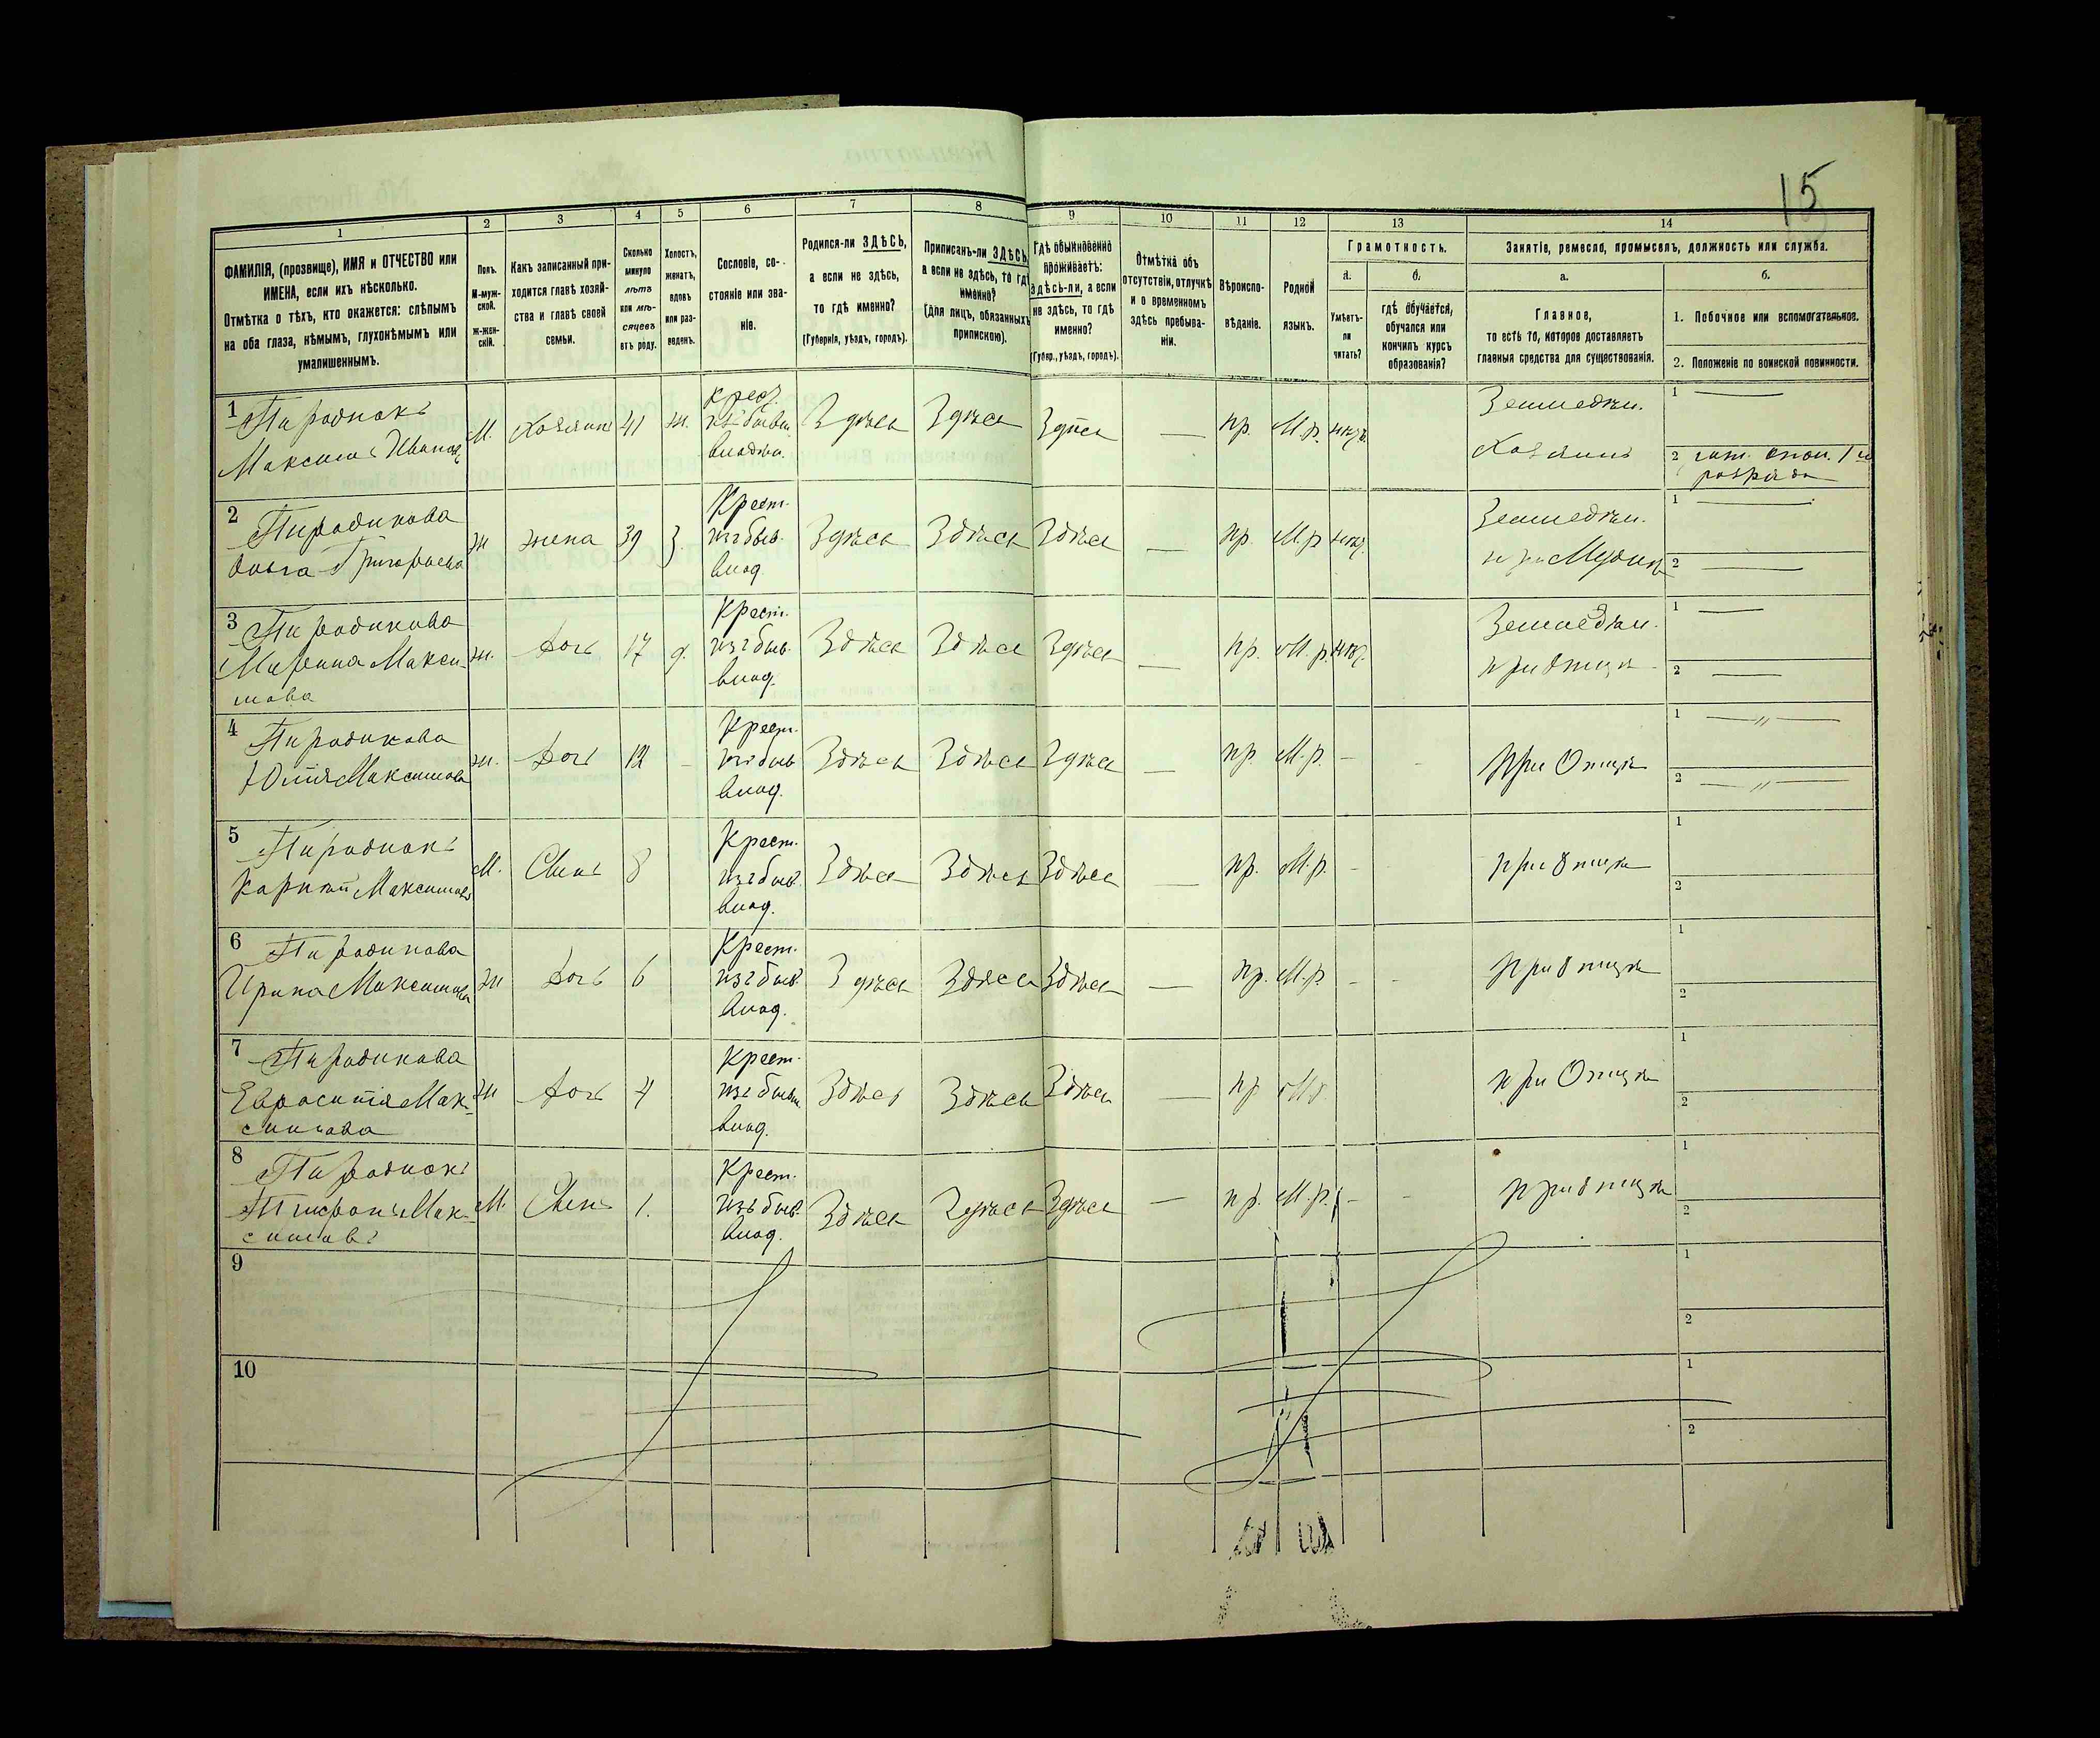 15
1
2
3
4
5
6
7
8
9
10
11
12
13
14
ФАМИЛІЯ, (прозвище), ИМЯ и ОТЧЕСТВО или
ИМЕНА, если ихъ нѣсколько.
Отмѣтка о тѣхъ, кто окажется: слѣпымъ
на оба глаза, нѣмымъ, глухонѣмымъ или
умалишеннымъ.
Полъ.
М-муж-
ской.
Ж-жен-
скій.
Какъ записанный при-
ходится главѣ хозяй-
ства и главѣ своей
семьи.
Сколько
минуло
лѣтъ
или мѣ-
сяцевъ
отъ роду.
Холостъ,
женатъ,
вдовъ
или раз-
веденъ.
Сословіе, со-
стояніе или зва-
ніе.
Родился-ли ЗДѢСЬ,
а если не здѣсь,
то гдѣ именно?
(Губернія, уѣздъ, городъ).
Приписанъ-ли ЗДѢСЬ,
а если не здѣсь, то гдѣ
именно?
(Для лицъ, обязанныхъ
припискою).
Гдѣ обыкновенно
проживаетъ:
здѣсь-ли, а если
не здѣсь, то гдѣ
именно?
(Губер., уѣздъ, городъ).
Отмѣтка объ
отсутствіи, отлучкѣ
и о временномъ
здѣсь пребыва-
ніи.
Вѣроиспо-
вѣданіе.
Родной
языкъ.
Грамотность.
а.
Умѣетъ-
ли
читать?
б.
гдѣ обучается,
обучался или
кончилъ курсъ
образованія?
Занятіе, ремесло, промыселъ, должность или служба.
а.
Главное,
то есть то, которое доставляетъ
главныя средства для существованія.
б.
1. Побочное или вспомогательное.
2. Положеніе по воинской повинности.
1
Максимъ Иванов
М.
Хозяинъ
41
ж.
Крест.
изъ бывш.
владѣл.
Здѣсь
Здѣсь
Здѣсь
—
пр.
М.р.
Земледѣл.
Хозяинъ
1 —
2
разряда
2
Григорьева
ж
жена
39
З.
Крест.
изъ быв.
влад.
Здѣсь
Здѣсь
Здѣсь
—
пр.
М.р
Земледѣл.
при Мужѣ
1 —
2 —
3
Марина Макси
мова
ж.
Дочь
17
д.
Крест.
изъ быв.
влад.
Здѣсь
Здѣсь
Здѣсь
—
пр.
М.р.
Земледѣл.
при Отцѣ
1 —
2 —
4
Максимова
ж.
Дочь
12
Крест.
изъ быв
влад.
Здѣсь
Здѣсь
Здѣсь
—
пр
М.р.
—
при Отцѣ
1 — " —
2 — " —
5
Максимовъ
М.
Сынъ
8
Крест.
изъ быв.
влад.
Здѣсь
Здѣсь
Здѣсь
—
пр.
М.р.
—
при Отцѣ
1
2
6
Ирина Максимова
ж
Дочь
6
Крест.
изъ быв.
влад.
Здѣсь
Здѣсь
Здѣсь
—
пр.
М.р
—
при Отцѣ
1
2
7
Мак-
симова
ж
Дочь
4
Крест.
изъ бывш.
влад.
Здѣсь
Здѣсь
Здѣсь
—
пр
при Отцѣ
1
2
8
Мак-
симовъ
М.
Сынъ
1.
Крест.
изъ быв.
влад.
Здѣсь
Здѣсь
Здѣсь
—
пр.
М.р.
—
при Отцѣ
1
2
9
1
2
10
1
2